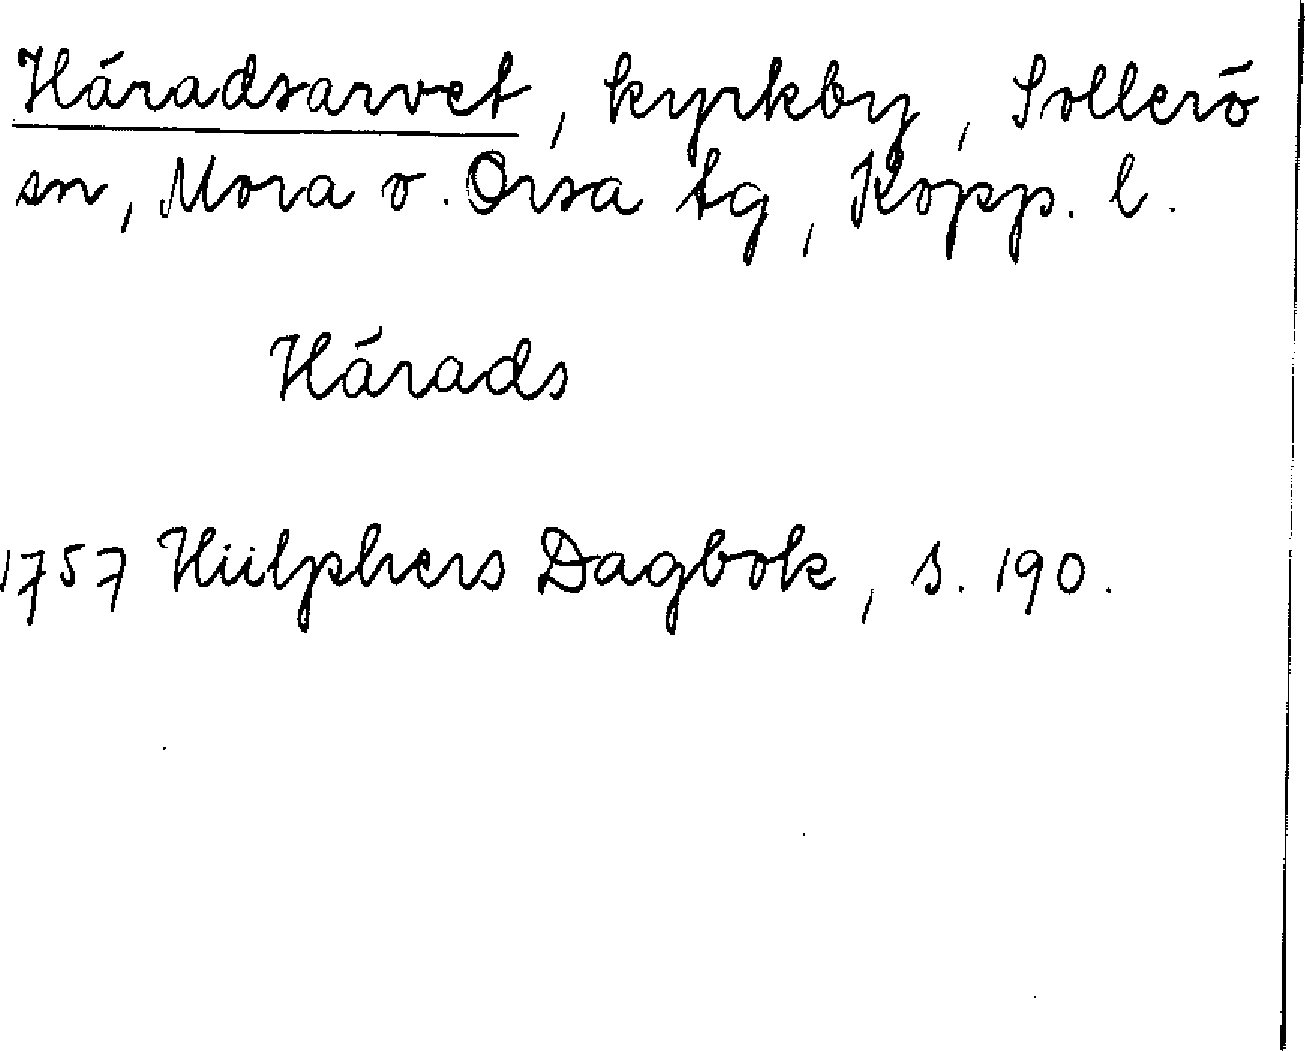 Häradsarvet, kyrkby, Sollerö
sn, Mora o. Orsa tg, Kopp. l.
Härads
1757 Hülphers Dagbok, s. 190.